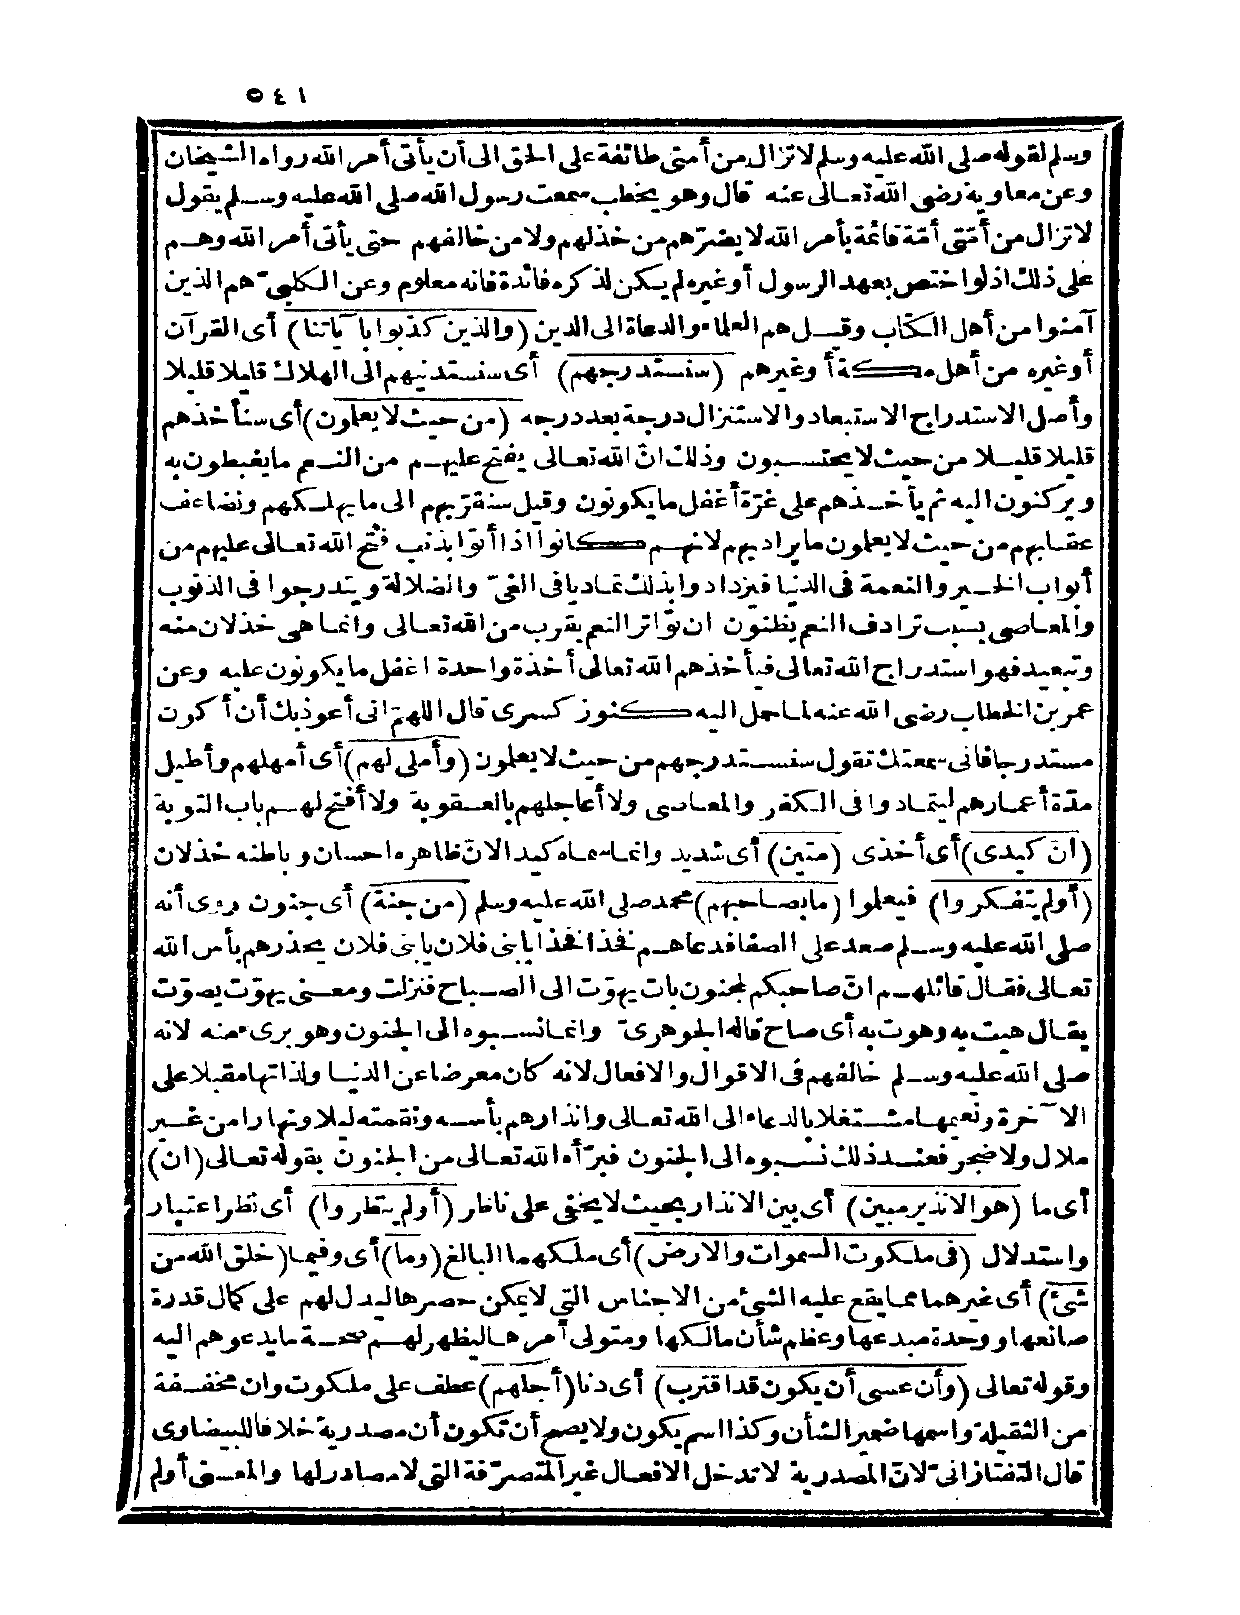 ٥٤١
وسلم لقوله صلى الله عليه وسلم لا تزال من أمتى طائفة على الحق الى أن يأتى أمر الله رواه الشيخان
وعن معاوية رضى الله تعالى عنه قال وهو يخطب سمعت رسول الله صلى الله عليه وسلم يقول
لا تزال من أمّتى أمّة قائمة بأمر الله لا يضرّهم من خذلهم ولا من خالفهم حتى يأتى أمر الله وهم
على ذلك اذ لو اختص بعهد الرسول أو غيره لم يكن لذكره فائدة فانه معلوم وعن الكلبىّ هم الذين
آمنوا من أهل الكتاب وقيل هم العلماء والدعاة الى الدين (والذين كذبوا بآياتنا) أى القرآن
أو غيره من أهل مكة أو غيرهم (سنستدرجهم) أى سنستدنيهم الى الهلاك قليلا قليلا
وأصل الاستدراج الاستبعاد والاستنزال درجة بعد درجه (من حيث لا يعلمون) أى سنأخذهم
قليلا قليلا من حيث لا يحتسبون وذلك انّ الله تعالى يفتح عليهم من النعم ما يغبطون به
ويركنون اليه ثم يأخذهم على غرّة أغفل ما يكونون وقيل سنقرّبهم الى ما يهلكهم ونضاعف
عقابهم من حيث لا يعلمون ما يراد بهم لانهم كانوا اذا أتوا بذنب فتح الله تعالى عليهم من
أبواب الخير والنعمة فى الدنيا فيزدادوا بذلك تماديا فى الغىّ والضلالة ويتدرجوا فى الذنوب
والمعاصى بسبب ترادف النعم يظنون ان تواتر النعم يقرب من الله تعالى وانما هى خذلان منه
وتبعيد فهو استدراج الله تعالى فيأخذهم الله تعالى أخذة واحدة اغفل ما يكونون عليه وعن
عمر بن الخطاب رضى الله عنه لما حمل اليه كنوز كسرى قال اللهمّ انى أعوذ بك أن أكون
مستدرجا فانى سمعتك تقول سنستدرجهم من حيث لا يعلمون (وأملى لهم) أى أمهلهم وأطيل
مدّة أعمارهم ليتمادوا فى الكفر والمعاصى ولا أعاجلهم بالعقوبة ولا أفتح لهم باب التوبة
(انّ كيدى) أى أخذى (متين) أى شديد وانما سماه كيدا لانّ ظاهره احسان وباطنه خذلان
(أولم يتفكروا) فيعلموا (ما بصاحبهم) محمد صلى الله عليه وسلم (من جنة) أى جنون روى أنه
صلى الله عليه وسلم صعد على الصفا فدعاهم فخذا فخذا يا بنى فلان يا بنى فلان يحذرهم بأس الله
تعالى فقال قائلهم انّ صاحبكم لمجنون بات يهوّت الى الصباح فنزلت ومعنى يهوّت يصوّت
يقال هيت به وهوت به أى صاح قاله الجوهرىّ وانما نسبوه الى الجنون وهو برىء منه لانه
صلى الله عليه وسلم خالفهم فى الاقوال والافعال لانه كان معرضا عن الدنيا ولذاتها مقبلا على
الآخرة ونعيمها مشتغلا بالدعاء الى الله تعالى وانذارهم بأسه ونقمته ليلا ونهارا من غير
ملال ولا ضجر فعند ذلك نسبوه الى الجنون فبرّأه الله تعالى من الجنون بقوله تعالى (ان)
أى ما (هو الا نذير مبين) أى بين الانذار بحيث لا يخفى على ناظر (أولم ينظروا) أى نظر اعتبار
واستدلال (فى ملكوت السموات والارض) أى ملكهما البالغ (وما) أى وفيما (خلق الله من
شئ) أى غيرهما مما يقع عليه الشئ من الاجناس التى لا يمكن حصرها ليدل لهم على كمال قدرة
صانعها ووحدة مبدعها وعظم شأن مالكها ومتولى أمرها ليظهر لهم صحة ما يدعوهم اليه
وقوله تعالى (وأن عسى أن يكون قد اقترب) أى دنا (أجلهم) عطف على ملكوت وان مخففة
من الثقيلة واسمها ضمير الشأن وكذا اسم يكون ولا يصح أن تكون أن مصدرية خلافا للبيضاوى
قال التفتازانىّ لانّ المصدرية لا تدخل الافعال غير المتصرّفة التى لا مصادر لها والمعنى أولم